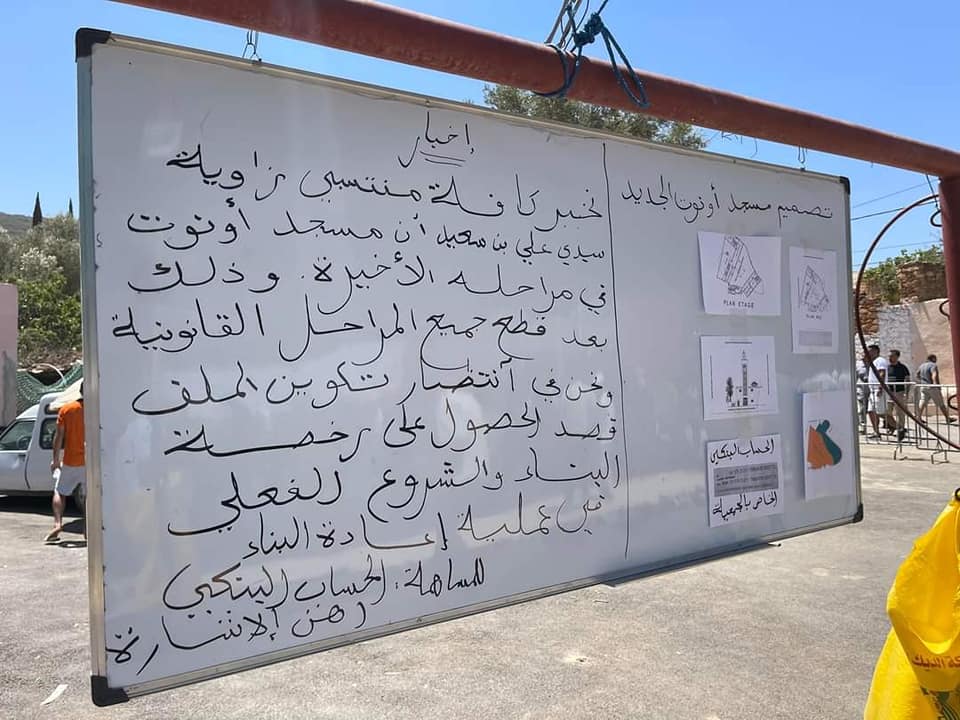 إخبار
نخبر كافة منتسبي زاوية
سيدي علي بن سعيد أن مسجد أونوت
في مراحله الأخيرة. وذلك
بعد قطع جميع المراحل القانونية
ونحن في أنتضار تكوين الملف
قصد الحصول على رخصة
البناء والشروع الفعلي
في عملية إعادة البناء
للمساهمة: الحساب البنكي
رهن الإشارة
تصميم مسجد أونوت الجديد
PLAN ETAGE
الحساب البنكي
الخاص بالجمعية